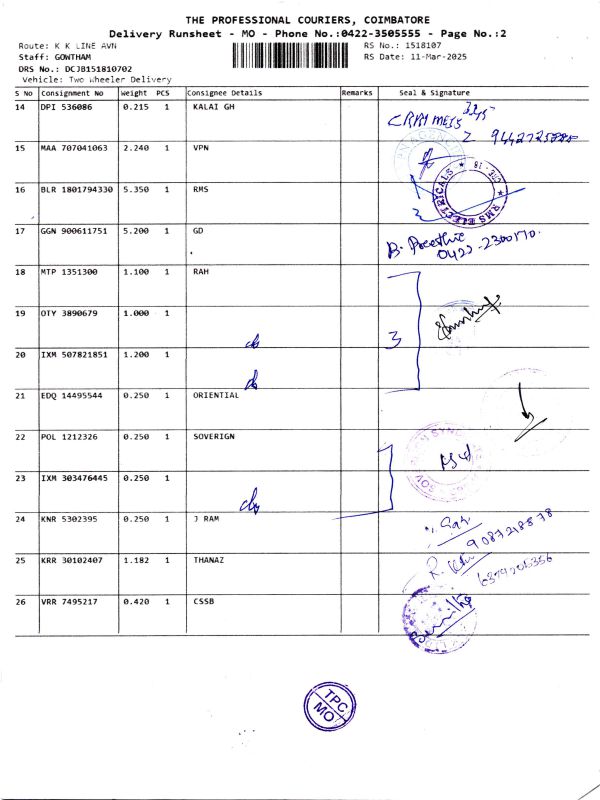 THE PROFESSIONAL COURIERS, COIMBATORE
Delivery Runsheet - MO - Phone No.:0422-3505555 - Page No.:2
Route: K K LINE AVN
RS No.: 1518107
Staff: GOWTHAM
RS Date: 11-Mar-2025
DRS No.: DCJB151810702
Vehicle: Two Wheeler Delivery
S No Consignment No Weight PCS Consignee Details Remarks Seal & Signature
14 DPI 536086 0.215 1 KALAI GH
15 MAA 707041063 2.240 1 VPN
16 BLR 1801794330 5.350 1 RMS
RMS ELECTRICALS CBE - 18
17 GGN 900611751 5.200 1 GD
B. Preethie
0422-2300170.
18 MTP 1351300 1.100 1 RAH
19 OTY 3890679 1.000 1
3
20 IXM 507821851 1.200 1
21 EDQ 14495544 0.250 1 ORIENTIAL
22 POL 1212326 0.250 1 SOVERIGN
23 IXM 303476445 0.250 1
24 KNR 5302395 0.250 1 J RAM
9087218878
25 KRR 30102407 1.182 1 THANAZ
26 VRR 7495217 0.420 1 CSSB
TPC
MO